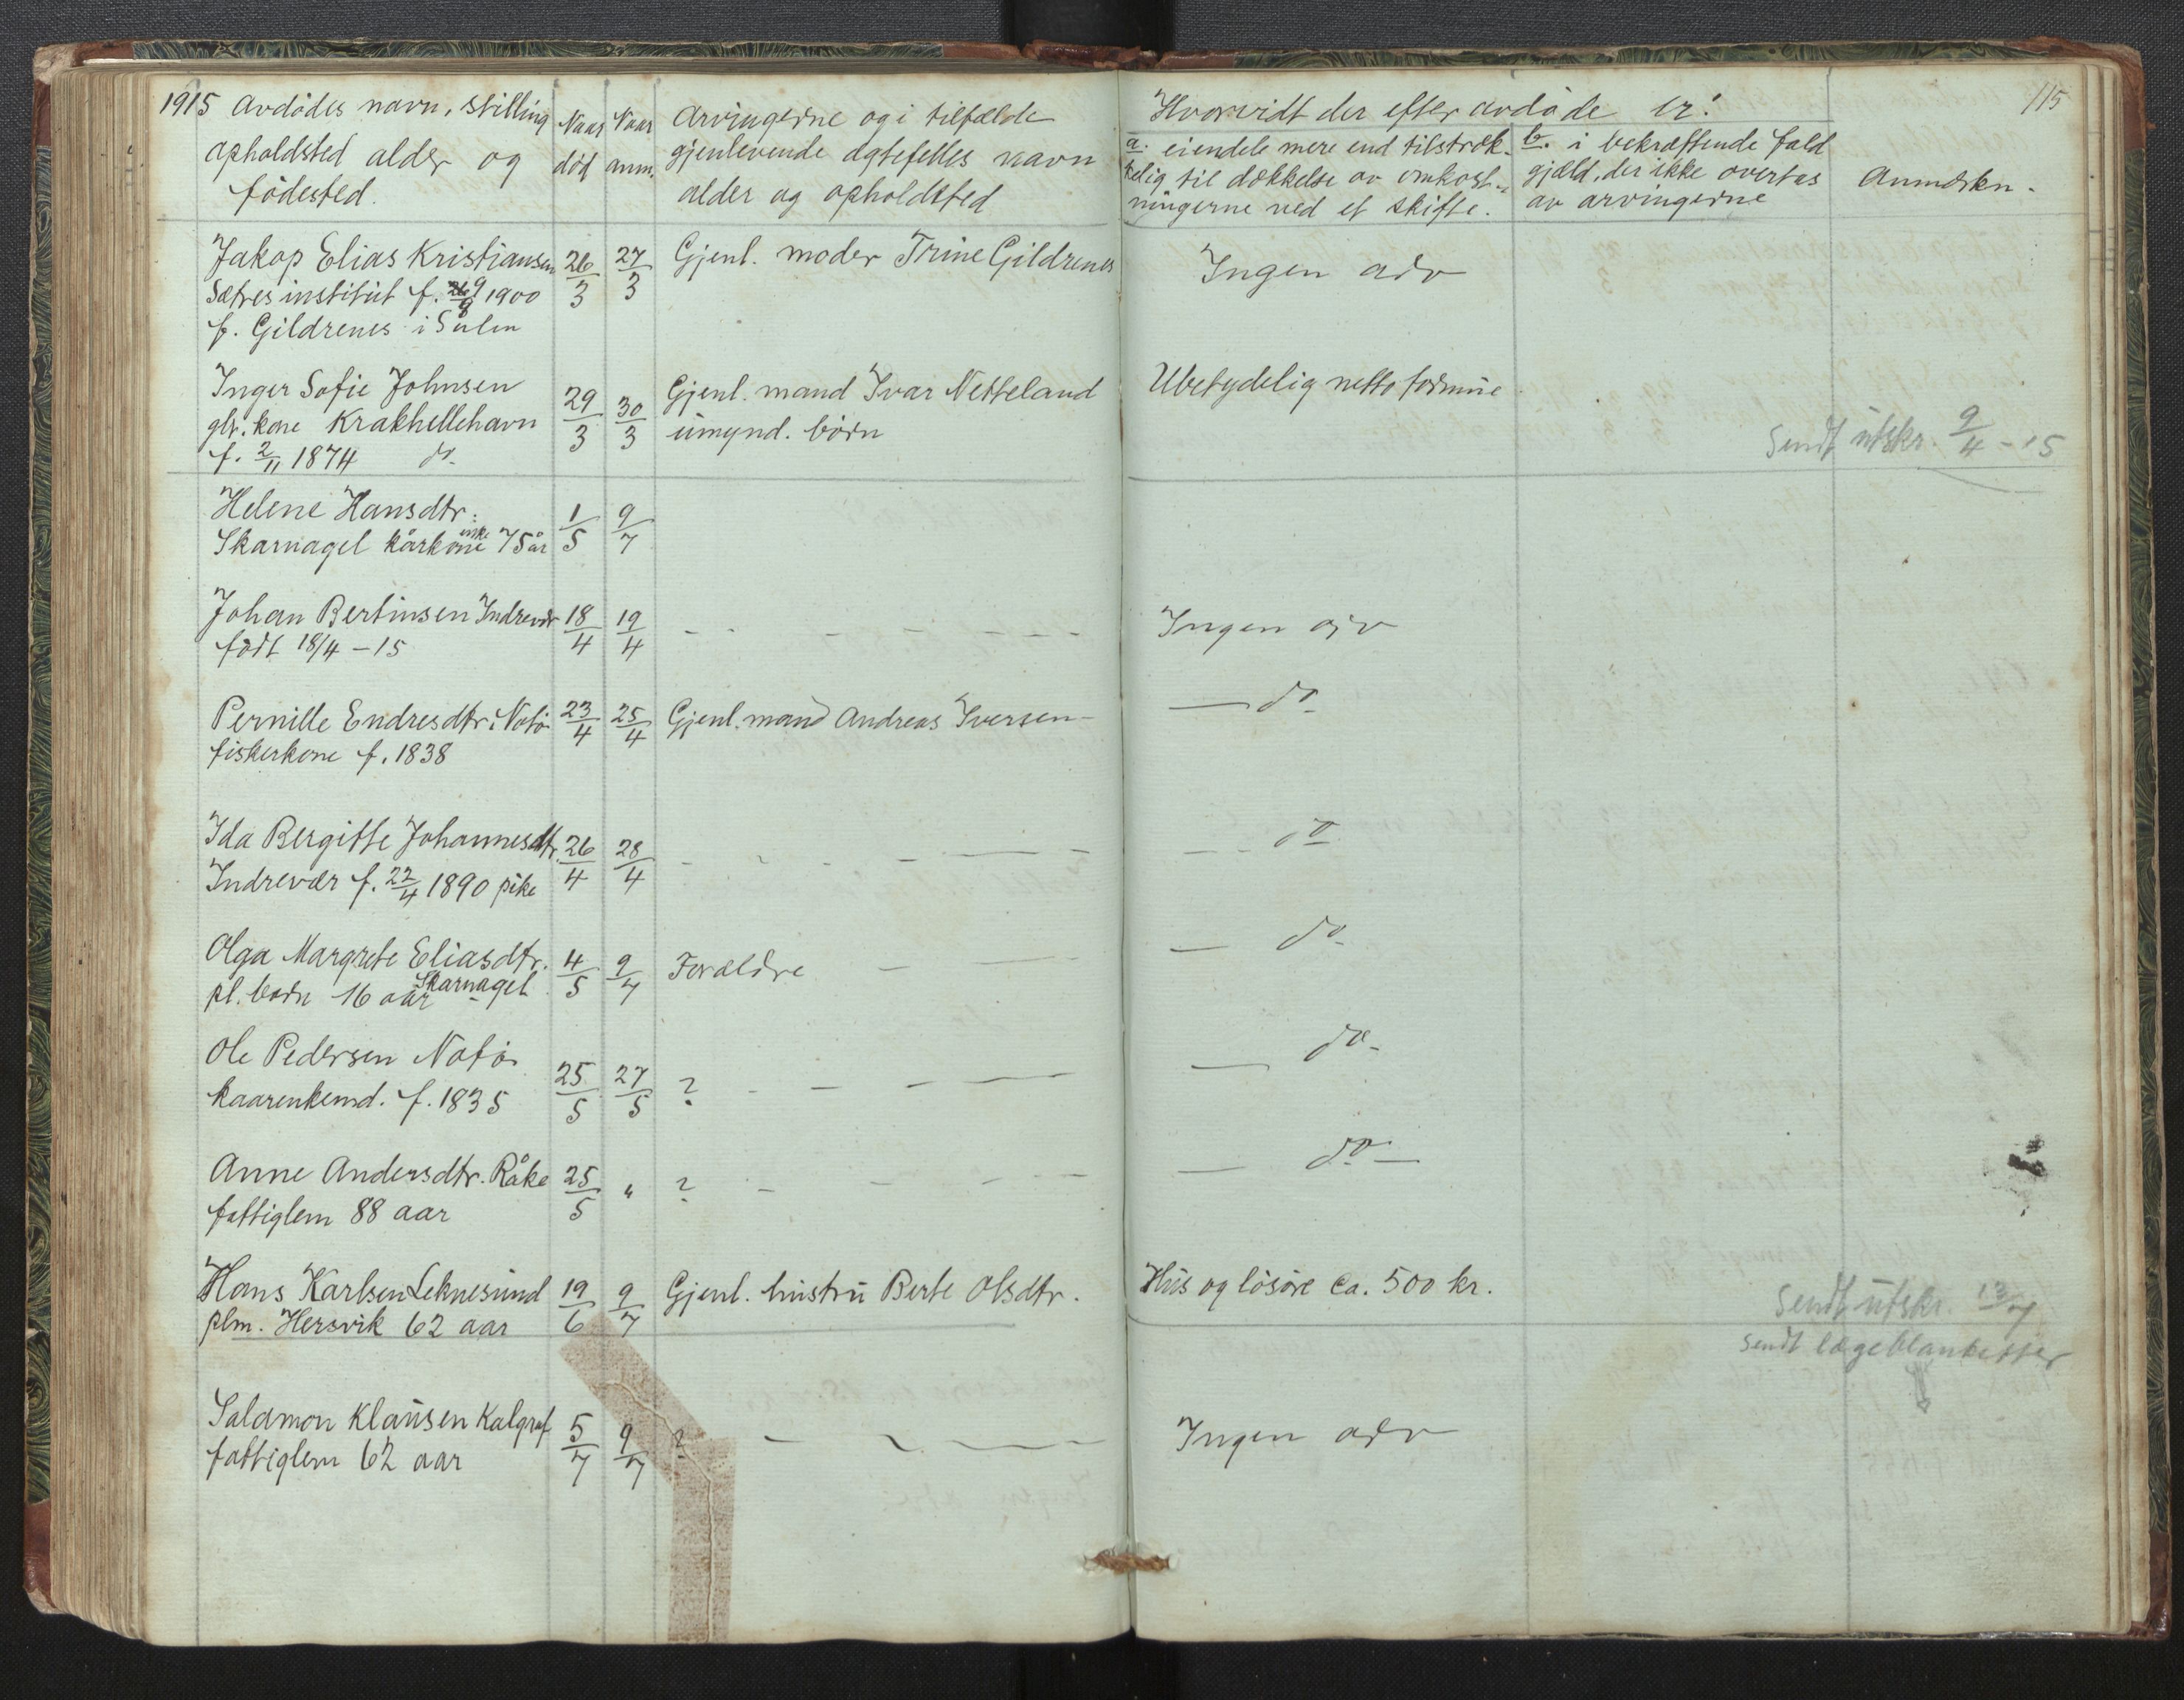 1915 Avdødes navn, stilling
opholdsted alder og
fødested.
Naar
død
Naar
anm.
Arvingerne og i tilfælde
gjenlevende ægtefelles navn
alder og opholdsted
Hvorvidt der efter avdøde er:
a. eiendele mere end tilstræk-
kelig til dækkelse av omkost-
ningerne ved et skifte.
b. i bekræftende fald
gjæld, der ikke overtas
av arvingerne
Anmerkn.
115
Jakop Elias Kristiansen 26/3 27/3 Gjenl. moder Trine Gildrenes Ingen adv
Sætres institut f. 9/8 1900
f. Gildrenes i Sulen
Inger Sofie Johnsen 29/3 30/3 Gjenl. mand Ivar Netteland Ubetydelig netto formue
gbr. kone Krakhellehavn umynd. børn
f. 2/11 1874 do
Sendt utskr. 9/4 - 15
Helene Hansdtr. 1/5 9/7
Skarnagel kårkone enke 75 år
Johan Bertinsen Indrevær 18/4 19/4 - - - - - - - Ingen adv
født 18/4 - 15
Pernille Endresdtr. Notø 23/4 25/4 Gjenl. mand Andreas Iversen - — do
fiskerkone f. 1838
Ida Bergitte Johannesdtr. 26/4 28/4 - - - - — - — do
Indrevær f. 22/4 1890 pike
Olga Margrete Eliasdtr. 4/5 9/7 Forældre - — — do
pl. barn 16 aar Skarnagel
Ole Pedersen Notø 25/5 27/5 ? - - - — — do
kaarenkemd. f. 1835
Anne Andersdtr. Råke 25/5 " ? - - - — — do —
fattiglem 88 aar
Hans Karlsen Leknesund 19/6 9/7 Gjenl. hustru Berte Olsdtr. Hus og løsøre ca. 500 kr.
plm. Hersvik 62 aar
Sendt utskr. 13/7
sendt lægeblanketter
Salamon Klausen Kalgraf 5/7 9/7 ? - - — Ingen adv
fattiglem 62 aar